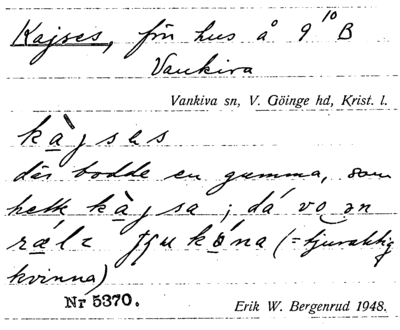 Kajses, förr hus å 9 10 B
Vankiva
Vankiva sn, V. Göinge hd, Krist. l.
kàjses
där bodde en gumma, som
hette kàjsa; dá vo
kóna (= tjuraktig
kvinna)
Nr 5370.
Erik W. Bergenrud 1948.